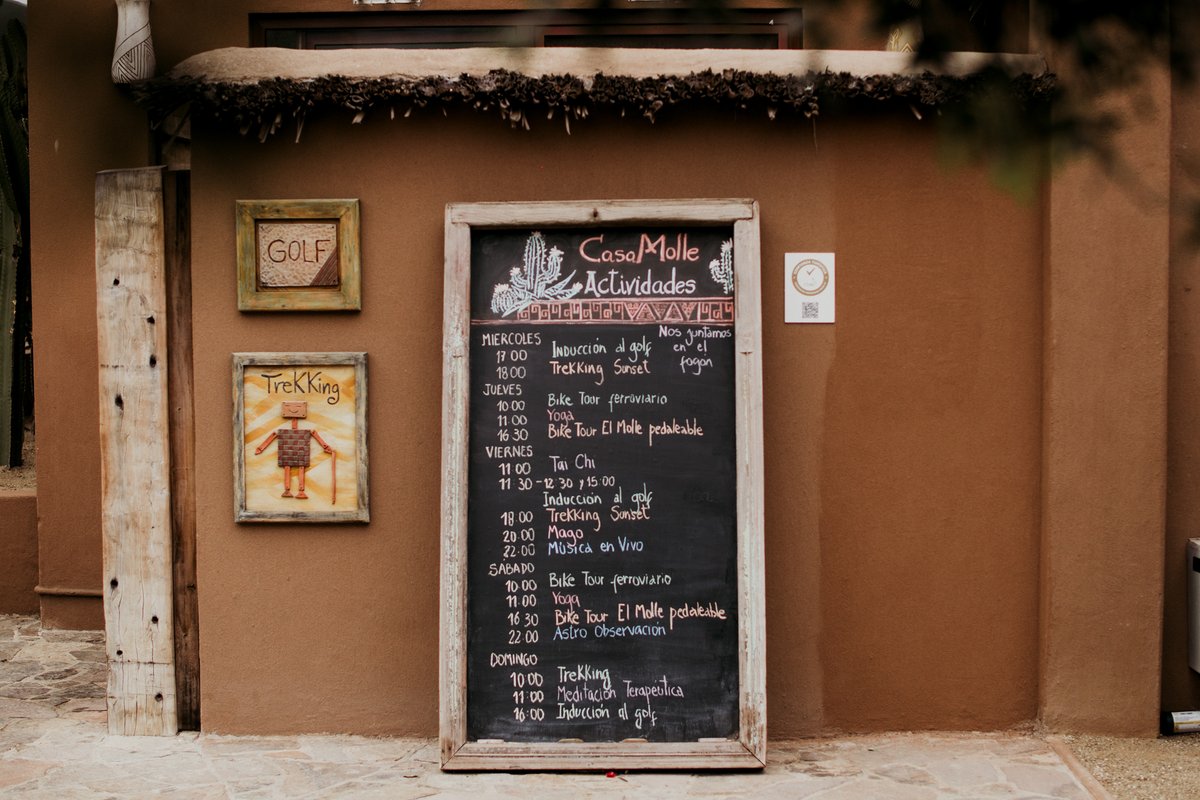 GOLF
TreKKing
CasaMolle
Actividades
MIERCOLES
Nos juntamos
en el
fogón
17 00 Inducción al golf
18 00 Trekking Sunset
JUEVES
10 00 Bike Tour ferroviario
11 00 Yoga
16 30 Bike Tour El Molle pedaleable
VIERNES
11 00 Tai Chi
11 30 - 12 30 y 15:00
Inducción al golf
18 00 Trekking Sunset
20 00 Mago
22:00 Música en Vivo
SABADO
10:00 Bike Tour ferroviario
11:00 Yoga
16 30 Bike Tour El Molle pedaleable
22:00 Astro Observación
DOMINGO
10:00 Trekking
11:00 Meditación Terapeútica
16:00 Inducción al golf